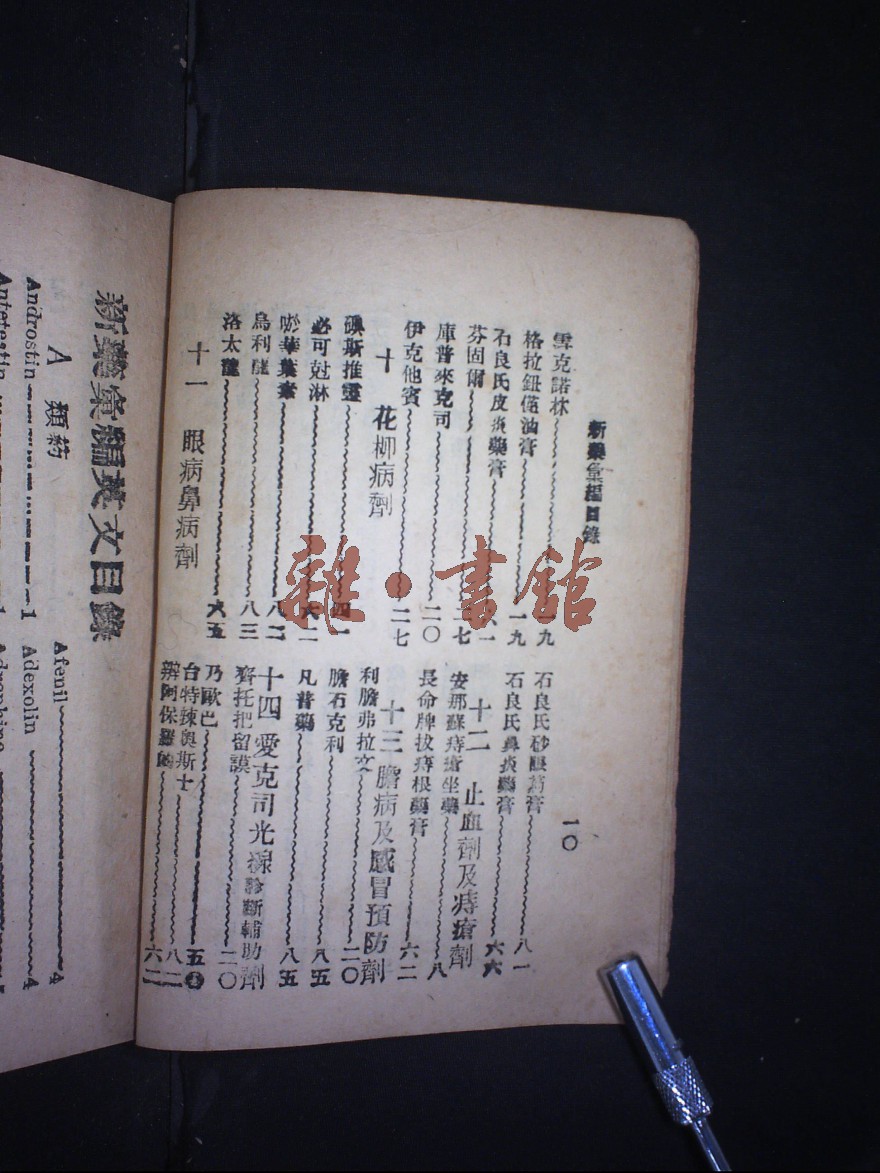 新藥彙編目錄
一〇
雪克諾林 一九
格拉鈕僅油膏 一九
石良氏皮炎藥膏
芬固爾
庫普來克司 二〇
伊克他賓 二七
十 花柳病劑
碘斯推靈 四一
必可尅淋
烏利 八三
洛太 六五
十一 眼病鼻病劑
石良氏砂眼藥膏 八一
石良氏鼻炎藥膏 六六
十二 止血劑及痔瘡劑
安那蘇痔瘡坐藥 八
長命牌拔痔根藥膏 六二
十三 膽病及感冒預防劑
利膽弗拉文 二〇
膽石克利 八五
凡普藥 八五
十四 愛克司光線診斷輔助劑
齊托把留謨 二〇
乃歐巴 五
台特辣奧斯十 八二
辦阿保羅 六二
新藥彙編英文目錄
A 類藥
Androstin 1
Antetestin
Afenil 4
Adexolin 4
雜·書館